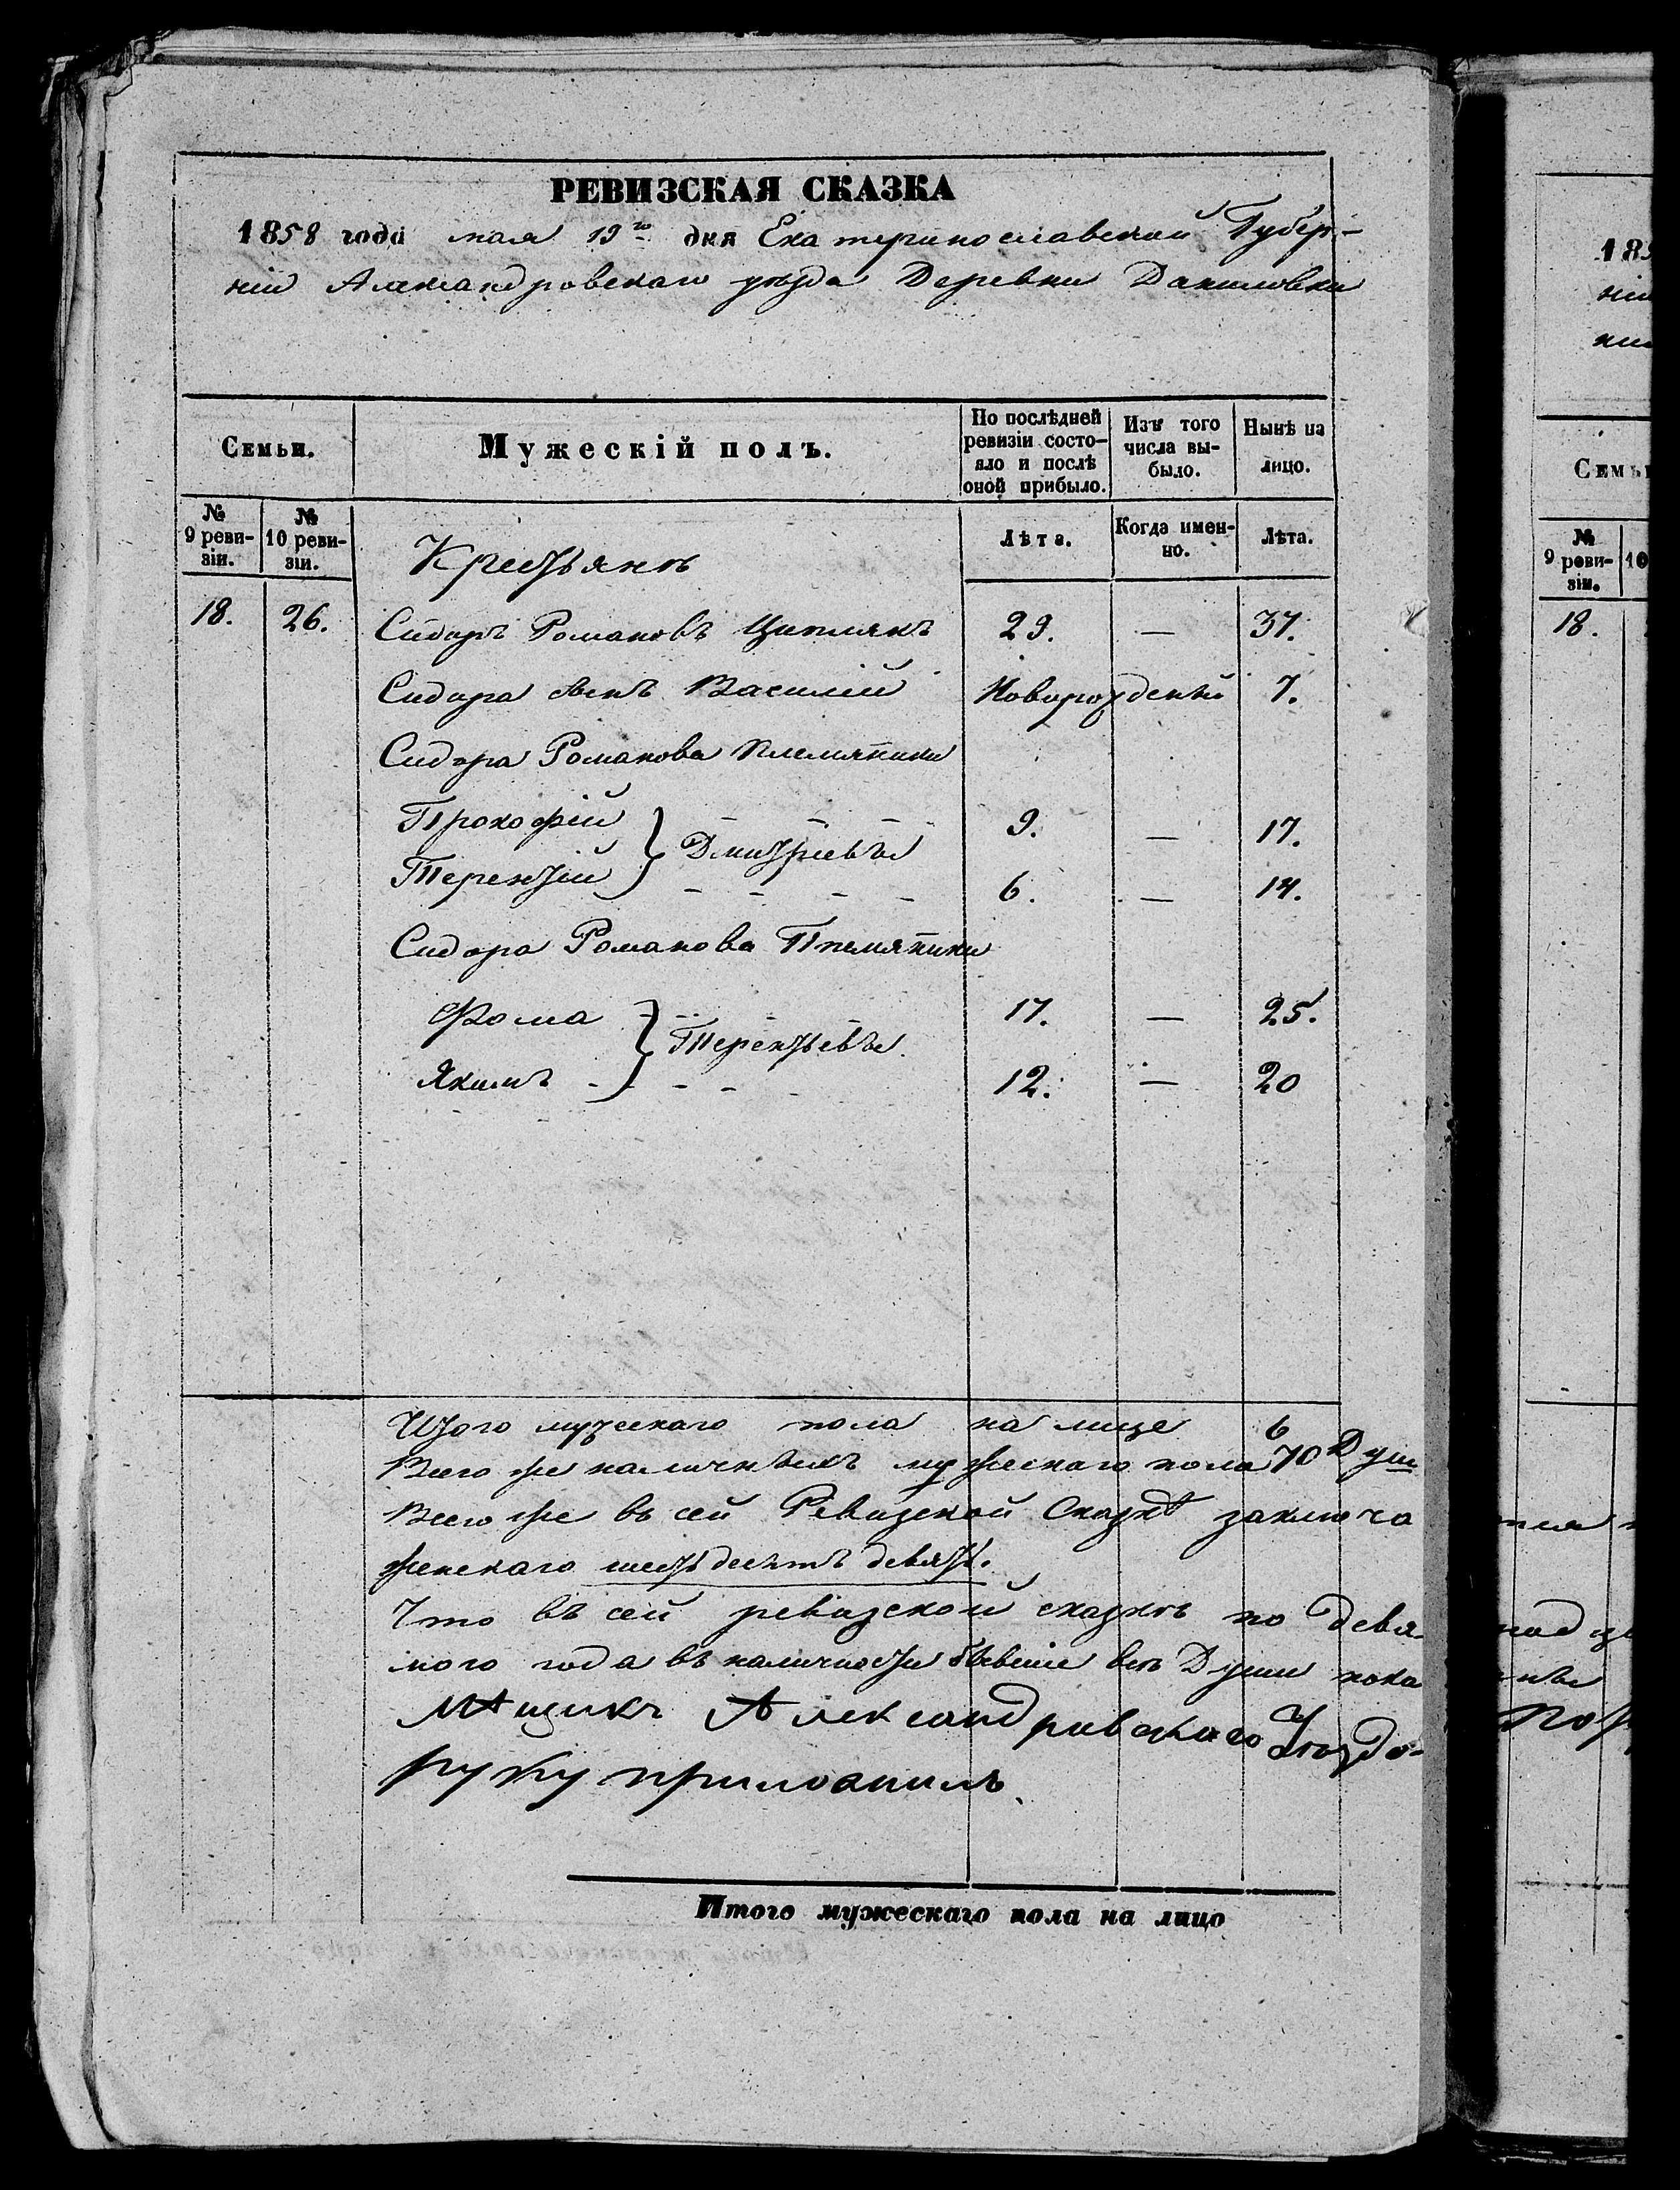 РЕВИЗСКАЯ СКАЗКА
1858 года мая 19го дня Екатеринославской Губер-
ніи Александровскаго уѣзда Деревни Даниловки
Семьи.
Мужескій полъ.
По послѣдней ревизіи состо-
яло и послѣ оной прибыло.
Изъ того числа вы-
было.
Нынѣ на лицо.
№ 9 реви-
зіи.
№ 10 реви-
зіи.
Лѣта.
Когда имен-
но.
Лѣта.
Крестьянъ
18. 26. Сидоръ Романовъ 29. — 37.
Сидора сынъ Василій Новорожденный 7.
Сидора Романова племянники
Прокофій 9. — 17.
Дмитріевы
Терентій 6. — 14.
Сидора Романова Племяники
Фома 17. — 25.
Терентьевы
Якимъ 12. — 20
Итого мужескаго пола на лице 6
Всего же наличныхъ мужескаго пола 70 Душ
Всего же въ сей Ревизской Сказкѣ заключа
женскаго шестьдесятъ девять.
Что въ сей ревизской сказкѣ по девя-
того года въ наличности бывшие всѣ Души пока
мѣщикъ Александровскаго Уѣзда
руку приложилъ
Итого мужескаго пола на лицо
185
Семьи
№ 9 реви-
зіи.
10
18.